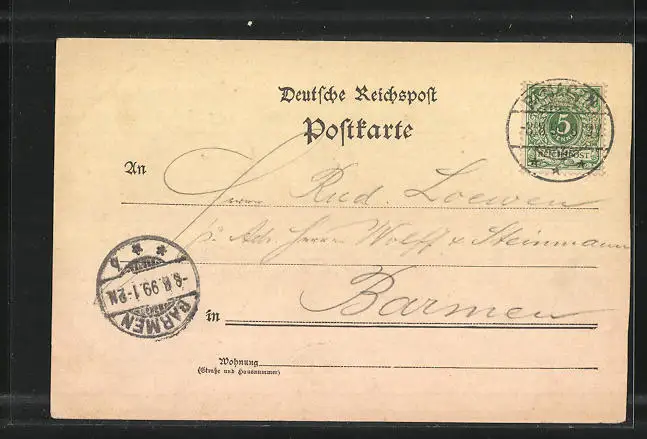 Deutsche Reichspost
Postkarte
5
REICHSPOST
An
Herrn Rud. Loewen
p. Adr. Herrn Wolff & Steinmann
in Barmen
BARMEN
-8.8.99.1-2N.
* * b
Wohnung
(Straße und Hausnummer)